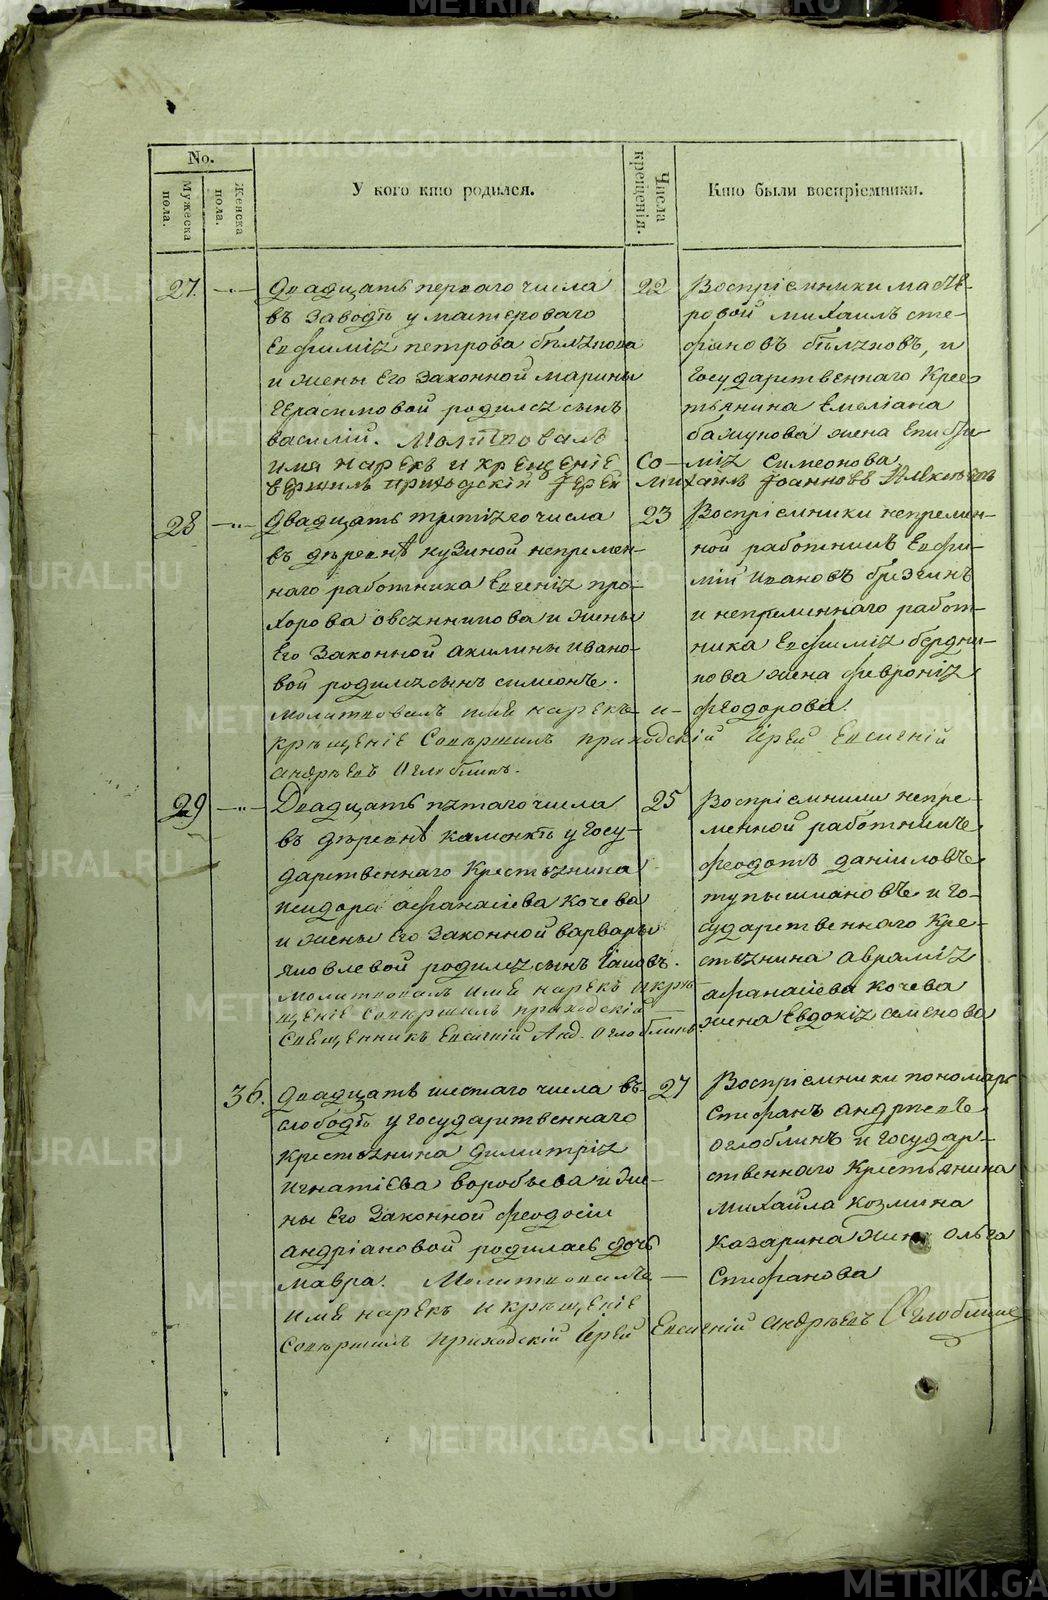 No.
Мужеска пола.
Женска пола.
У кого кто родился.
Числа крещенія.
Кто были воспріемники.
27.
Двадцать перваго числа
въ заводѣ у мастероваго
Евфимія петрова бѣлянова
и жены Его Законной марины
Герасимовой родился сынъ
василій. Молитвовалъ
имя нарекъ и крещеніе со-
вершилъ приходскій Іерей Михаилъ Іоанновъ
22
Воспріемники масте-
ровой михаилъ сте-
фановъ бѣляновъ, и
Государственнаго Крес-
тьянина Емеліана
бажукова жена Епифа-
мія симеонова
28
Двадцать третіяго числа
въ деревнѣ кузиной непремен-
наго работника Евгенія про-
хорова овсянникова и жены
Его Законной акилины ивано-
вой родился сынъ симеонъ.
молитвовалъ имя нарекъ и
крещеніе Совершилъ приходскій Іерей Евсигній
андреевъ Оглоблинъ.
23
Воспріемники непремен-
ной работникъ Евфи-
мій Ивановъ брезгинъ
и непременнаго работ-
ника Евфимія бердни-
кова жена февронія
феодорова.
29
Двадцать пятаго числа
въ деревнѣ каменкѣ у Госу-
дарственнаго Крестьянина
исидора афанасіева кочева
и жены его законной варвары
яковлевой родился сынъ Іаковъ.
молитвовалъ имя нарекъ и кре-
щеніе совершилъ приходскій
священникъ Евсигній Анд. Оглоблинъ.
25
Воспріемники непре-
менной работникъ
феодотъ даниловъ
тупышмановъ и го-
сударственнаго кре-
стьянина аврамія
афанасіева кочева
жена Евдокія семенова
36.
Двадцать шестаго числа въ
слободѣ у государственнаго
крестьянина димитрія
игнатіева воробьева и же-
ны Его Законной феодосіи
андріановой родилась дочь
мавра. Молитвовалъ
имя нарекъ и крещеніе
совершилъ приходскій Іерей Евсигній андреевъ Оглоблинъ
27
Воспріемники пономарь
стефанъ андреевъ
оглоблинъ и государ-
ственнаго Крестьянина
михаила козмина
казарина жена ольга
стефанова
METRIKI.GASO-URAL.RU